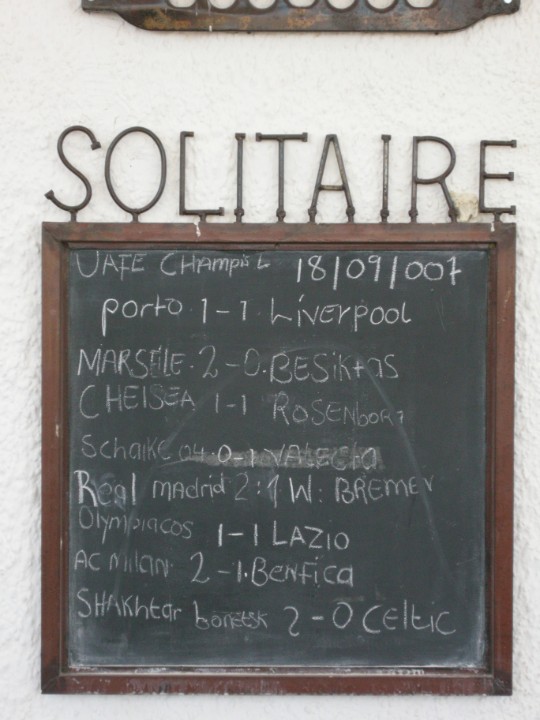 SOLITAIRE
UAFE CHAmpi L 18/09/007
porto 1-1 Liverpool
MARSEILE. 2-0. BESIKtAS
CHEISEA 1-1 ROSENborg
Schalke 04 0-1 VALECIA
Real madrid 2:1 W: BREMEr
Olympiacos 1-1 LAZIO
AC milan. 2-1. Benfica
SHAKhtar Donetsk 2-0 Celtic